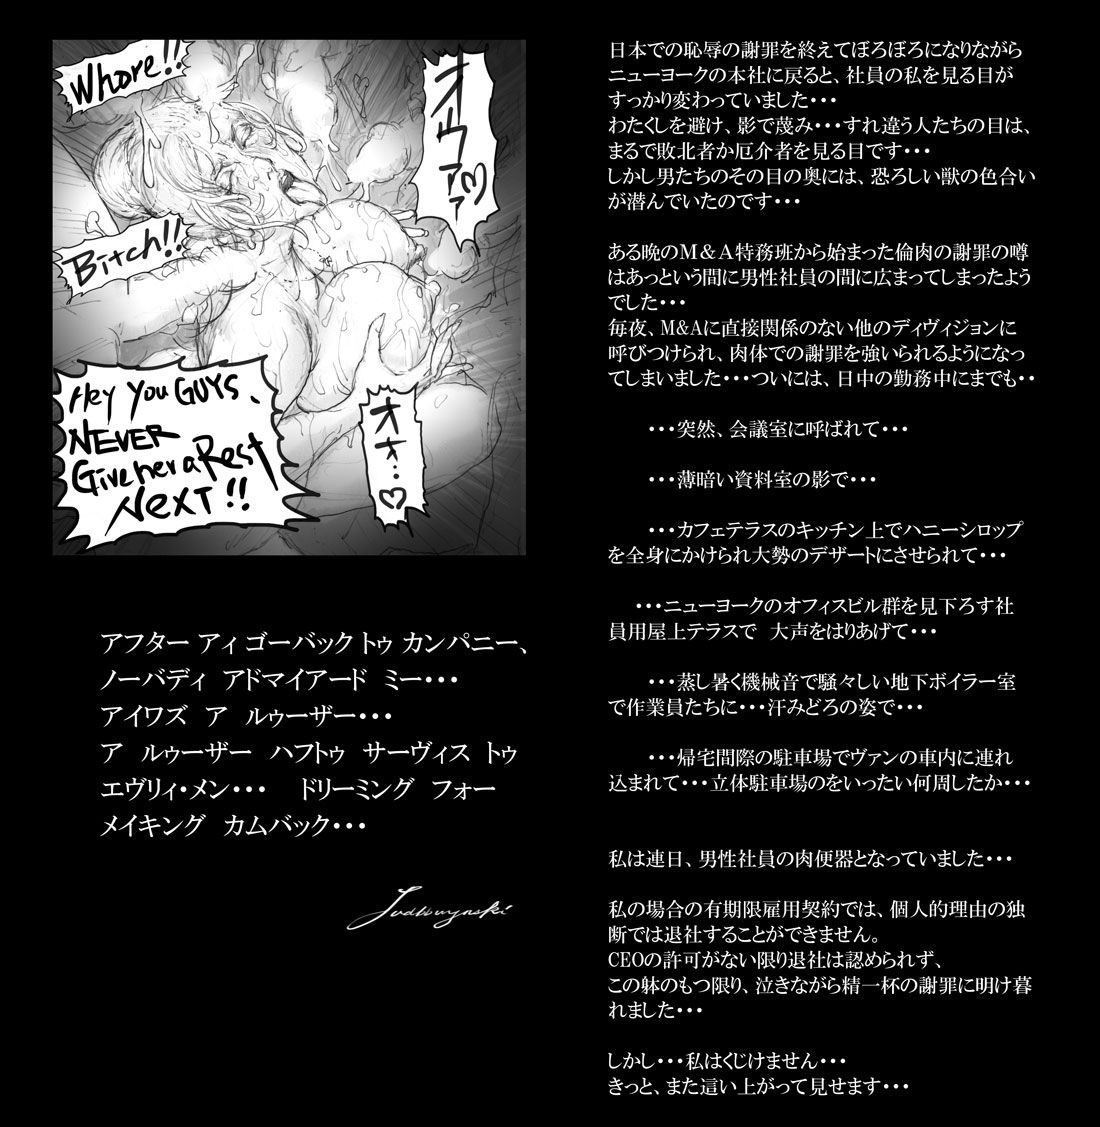 Whore!!
オウフアァ♡
Bitch!!
Hey You GUYS、
NEVER
Give her a Rest
NEXT!!
オオ…♡
アフター アィ ゴーバック トゥ カンパニー、
ノーバディ アドマイアード ミー・・・
アイワズ ア ルゥーザー・・・
ア ルゥーザー ハフトゥ サーヴィス トゥ
エヴリィ・メン・・・ ドリーミング フォー
メイキング カムバック・・・
日本での恥辱の謝罪を終えてぼろぼろになりながら
ニューヨークの本社に戻ると、社員の私を見る目が
すっかり変わっていました・・・
わたくしを避け、影で蔑み・・・すれ違う人たちの目は、
まるで敗北者か厄介者を見る目です・・・
しかし男たちのその目の奥には、恐ろしい獣の色合い
が潜んでいたのです・・・
ある晩のＭ＆Ａ特務班から始まった倫肉の謝罪の噂
はあっという間に男性社員の間に広まってしまったよう
でした・・・
毎夜、M&Aに直接関係のない他のディヴィジョンに
呼びつけられ、肉体での謝罪を強いられるようになっ
てしまいました・・・ついには、日中の勤務中にまでも・・
・・・突然、会議室に呼ばれて・・・
・・・薄暗い資料室の影で・・・
・・・カフェテラスのキッチン上でハニーシロップ
を全身にかけられ大勢のデザートにさせられて・・・
・・・ニューヨークのオフィスビル群を見下ろす社
員用屋上テラスで 大声をはりあげて・・・
・・・蒸し暑く機械音で騒々しい地下ボイラー室
で作業員たちに・・・汗みどろの姿で・・・
・・・帰宅間際の駐車場でヴァンの車内に連れ
込まれて・・・立体駐車場のをいったい何周したか・・・
私は連日、男性社員の肉便器となっていました・・・
私の場合の有期限雇用契約では、個人的理由の独
断では退社することができません。
CEOの許可がない限り退社は認められず、
この躰のもつ限り、泣きながら精一杯の謝罪に明け暮
れました・・・
しかし・・・私はくじけません・・・
きっと、また這い上がって見せます・・・